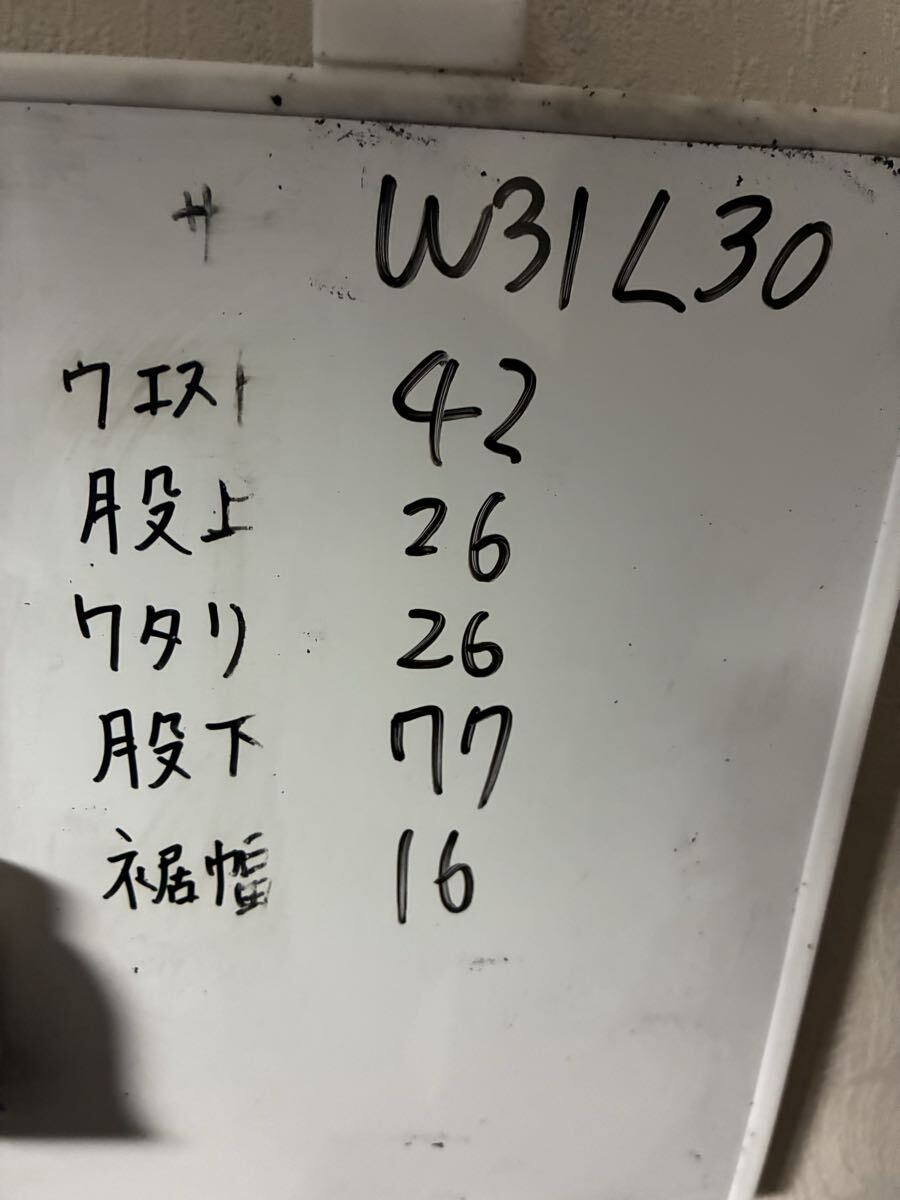 サ W31 L30
ウエスト 42
股上 26
ワタリ 26
股下 77
裾幅 16